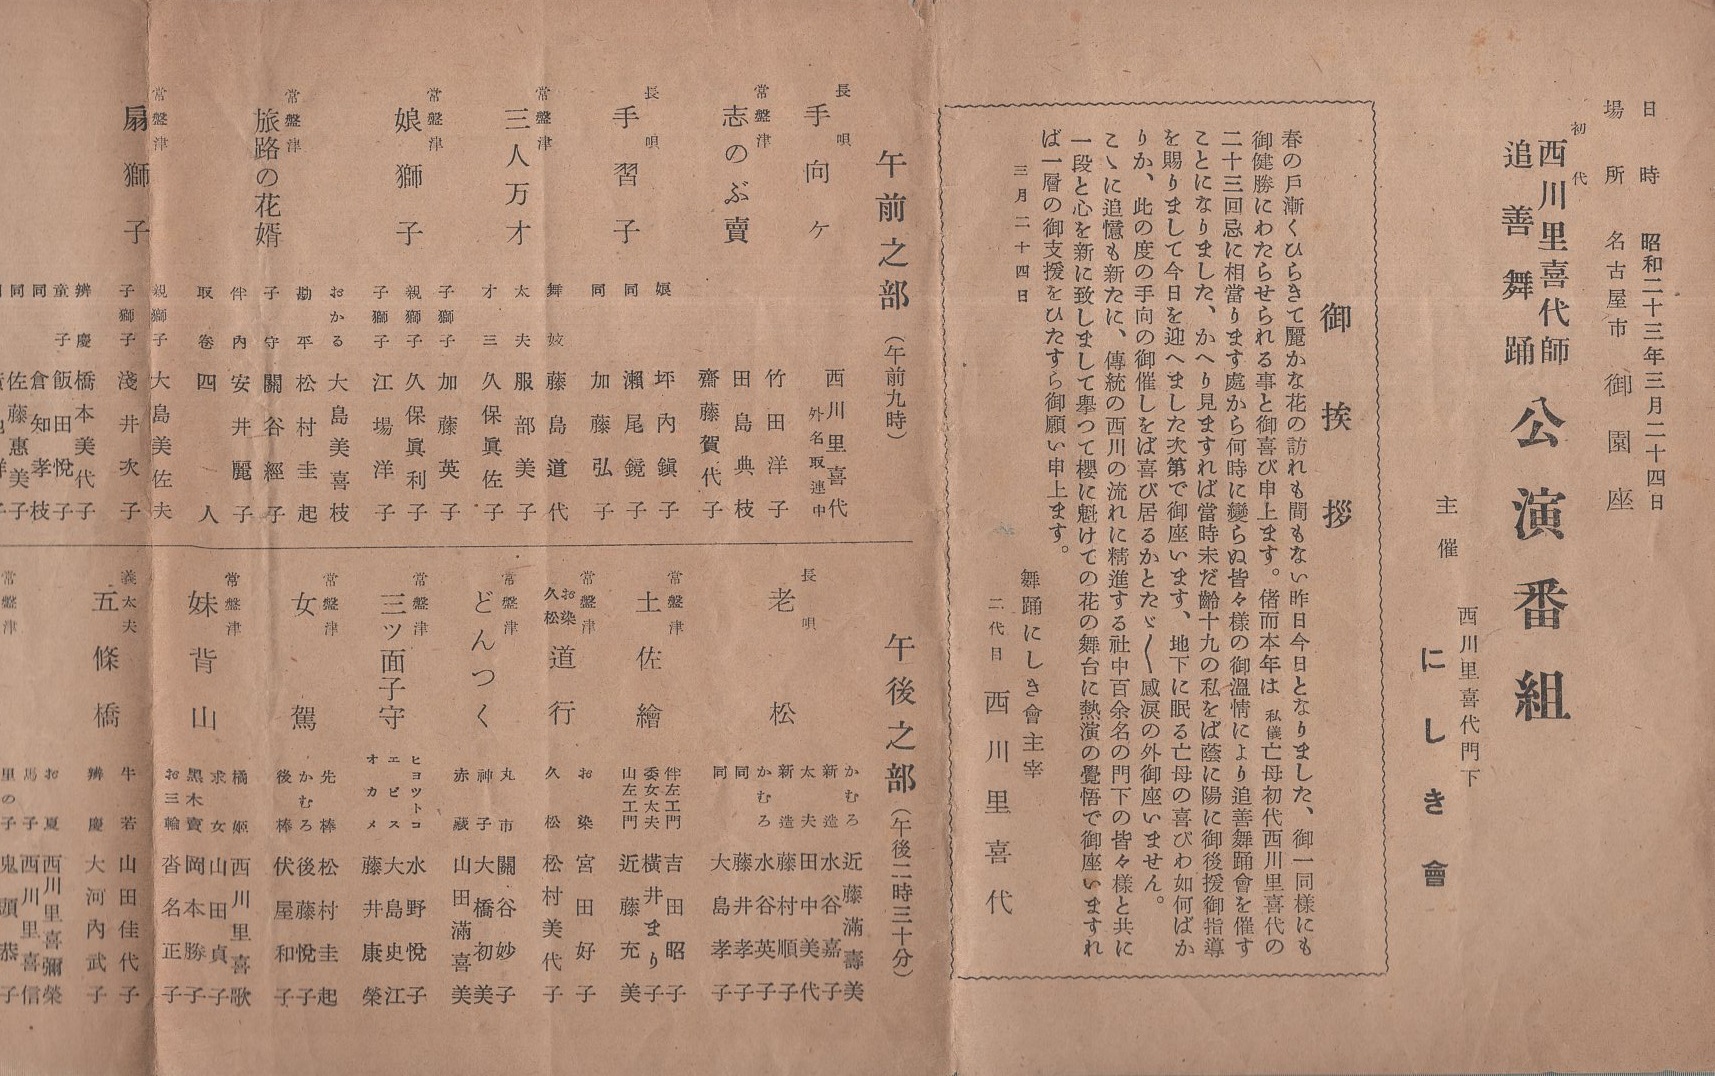 日時 昭和二十三年三月二十四日
場所 名古屋市 御園座
初代
西川里喜代師
追善舞踊
公演番組
主催
西川里喜代門下
にしき會
御挨拶
春の戸漸くひらきて麗かな花の訪れも間もない昨日今日となりました、御一同樣にも
御健勝にわたらせられる事と御喜び申上ます。偖而本年は 私儀 亡母初代西川里喜代の
二十三回忌に相當ります處から何時に變らぬ皆々樣の御溫情により追善舞踊會を催す
ことになりました、かへり見ますれば當時未だ齡十九の私をば蔭に陽に御後援御指導
を賜りまして今日を迎へました次第で御座います、地下に眠る亡母の喜びわ如何ばか
りか、此の度の手向の御催しをば喜び居るかとたゞ〳〵感淚の外御座いません。
こゝに追憶も新たに、傳統の西川の流れに精進する社中百余名の門下の皆々樣と共に
一段と心を新に致しまして擧つて櫻に魁けての花の舞台に熱演の覺悟で御座いますれ
ば一層の御支援をひたすら御願い申上ます。
三月二十四日
舞踊にしき會主宰
二代目 西川里喜代
午前之部(午前九時)
長唄
手向ケ
西川里喜代
外名取連中
常盤津
志のぶ賣
竹田洋子
田島典枝
齋藤賀代子
長唄
手習子
娘 坪內鎭子
同 瀨尾鏡子
同 加藤弘子
常盤津
三人万才
舞妓 藤島道代
太夫 服部美子
才三 久保眞佐子
常盤津
娘獅子
子獅子 加藤英子
親獅子 久保眞利子
子獅子 江場洋子
常盤津
旅路の花婿
おかる 大島美喜枝
勘平 松村圭起
子守 關谷經子
伴內 安井麗子
取卷 四人
常盤津
扇獅子
親獅子 大島美佐夫
子獅子 淺井次子
辨慶 橋本美代子
童子 飯田悅子
同 倉知孝枝
同 佐藤惠美子
午後之部(午後二時三十分)
長唄
老松
かむろ 近藤滿壽美
新造 水谷嘉子
太夫 田中美代
新造 藤村順子
かむろ 水谷英子
同 藤井孝子
同 大島孝子
常盤津
土佐繪
伴左エ門 吉田昭子
委女太夫 橫井まり子
山左エ門 近藤充美
常盤津
お染
久松
道行
お染 宮田好子
久松 松村美代子
常盤津
どんつく
丸市 關谷妙子
神子 大橋初美
赤藏 山田滿喜美
常盤津
三ツ面子守
ヒヨツトコ 水野悅子
エビス 大島史江
オカメ 藤井康榮
常盤津
女駕
先棒 松村圭起
かむろ 後藤悅子
後棒 伏屋和子
常盤津
妹背山
橘姬 西川里喜歌
求女 山田貞子
黑木賣 岡本勝子
お三輪 沓名正子
義太夫
五條橋
牛若 山田佳代子
辨慶 大河內武子
常盤津
お夏 西川里喜彌榮
馬子 西川里喜信
里の子 鬼頭恭子